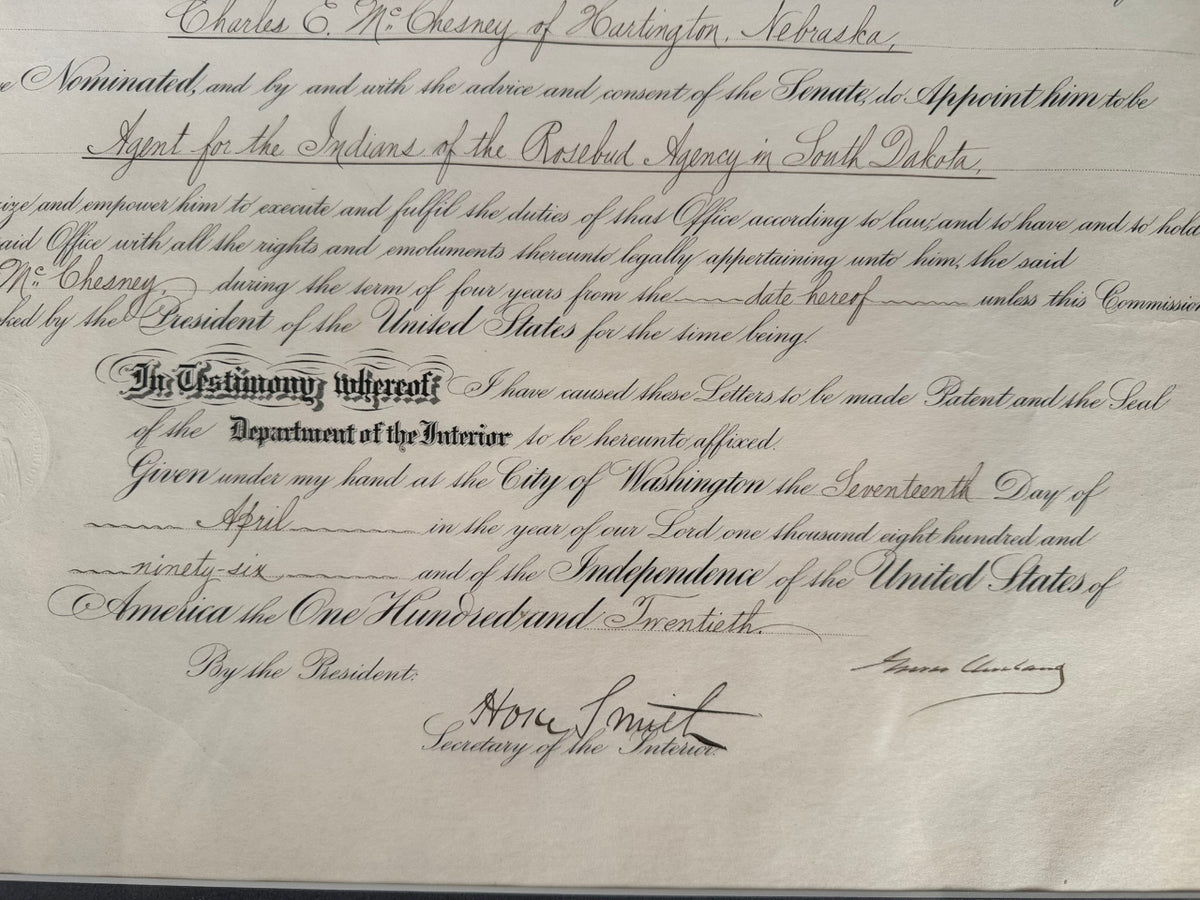 Charles E. McChesney of Hartington, Nebraska,
Nominated, and by and with the advice and consent of the Senate, do Appoint him to be
Agent for the Indians of the Rosebud Agency in South Dakota,
ize and empower him to execute and fulfil the duties of that Office according to law, and to have and to hold
aid Office with all the rights and emoluments thereunto legally appertaining unto him, the said
McChesney, during the term of four years from the date hereof unless this Commission
ked by the President of the United States for the time being.
In Testimony whereof, I have caused these Letters to be made Patent and the Seal
of the Department of the Interior to be hereunto affixed.
Given under my hand at the City of Washington the Seventeenth Day of
April in the year of our Lord one thousand eight hundred and
ninety-six, and of the Independence of the United States of
America the One Hundred and Twentieth.
Grover Cleveland
By the President:
Hoke Smith
Secretary of the Interior.